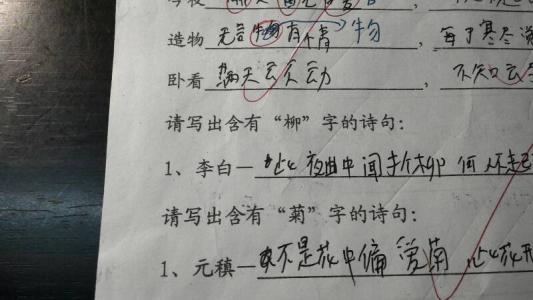 造物 无言 有情 物 ，每于寒尽
卧看 满天云不动 ，不知云
请写出含有“柳”字的诗句：
1、李白— 此夜曲中闻折柳 何人不起
请写出含有“菊”字的诗句：
1、元稹— 不是花中偏爱菊，此花开